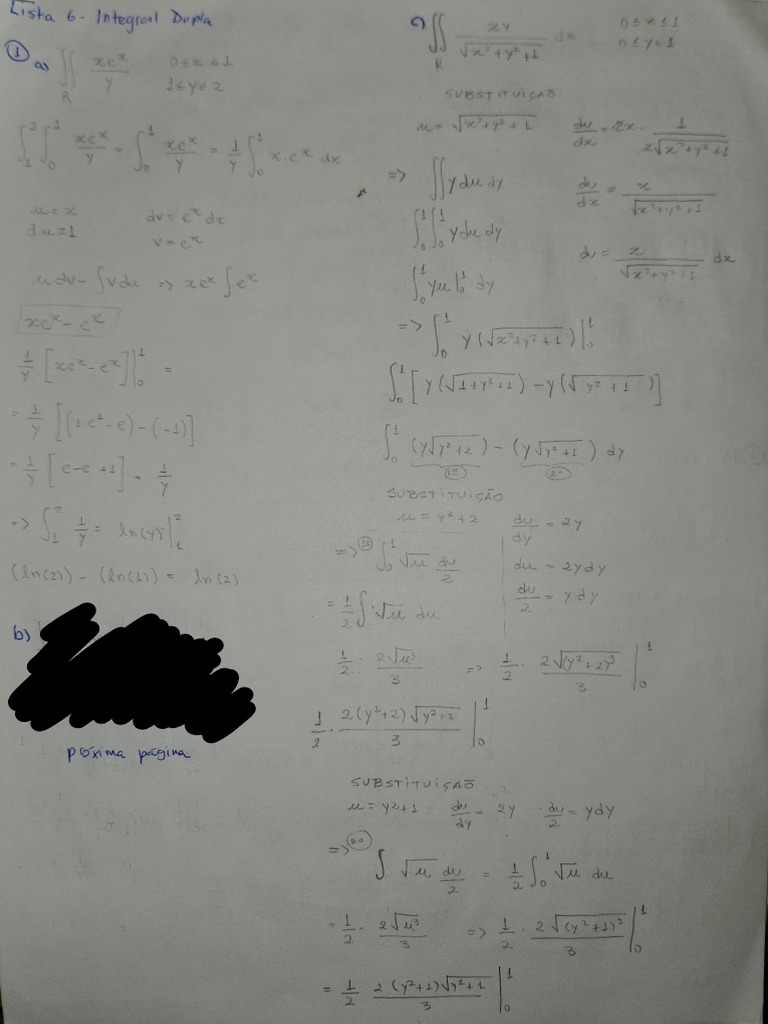 Lista 6 - Integral Dupla
① a) ∬_R xe^x/y 0≤x≤1
1≤y≤2
∫_1^2 ∫_0^1 xe^x/y = ∫_0^1 xe^x/y = 1/y ∫_0^1 x·e^x dx
u = x dv = e^x dx
du = 1 v = e^x
u dv - ∫v du => xe^x ∫e^x
xe^x - e^x
1/y [xe^x - e^x]|_0^1 =
= 1/y [(1·e^1 - e) - (-1)]
= 1/y [e - e + 1] = 1/y
=> ∫_1^2 1/y = ln(y)|_1^2
(ln(2)) - (ln(1)) = ln(2)
b)
próxima página
c) ∬_R xy/√(x²+y²+1) dx 0≤x≤1
0≤y≤1
SUBSTITUIÇÃO
u = √(x²+y²+1) du/dx = 2x · 1/(2√(x²+y²+1))
=> ∬ y du dy du/dx = x/√(x²+y²+1)
∫_0^1 ∫_0^1 y du dy
du = x/√(x²+y²+1) dx
∫_0^1 yu|_0^1 dy
=> ∫_0^1 y(√(x²+y²+1))|_0^1
∫_0^1 [y(√(1+y²+1)) - y(√(y²+1))]
∫_0^1 (y√(y²+2)) - (y√(y²+1)) dy
1º 2º
SUBSTITUIÇÃO
u = y²+2 du/dy = 2y
=> 1º ∫_0^1 √u du/2 du = 2y dy
= 1/2 ∫ √u du du/2 = y dy
1/2 · 2√u³/3 => 1/2 · 2√(y²+2)³/3 |_0^1
1/2 · 2(y²+2)√(y²+2)/3 |_0^1
SUBSTITUIÇÃO
u = y²+1 du/dy = 2y · du/2 = y dy
=> 2º
∫ √u du/2 = 1/2 ∫_0^1 √u du
= 1/2 · 2√u³/3 => 1/2 · 2√(y²+1)³/3 |_0^1
= 1/2 2(y²+1)√(y²+1)/3 |_0^1